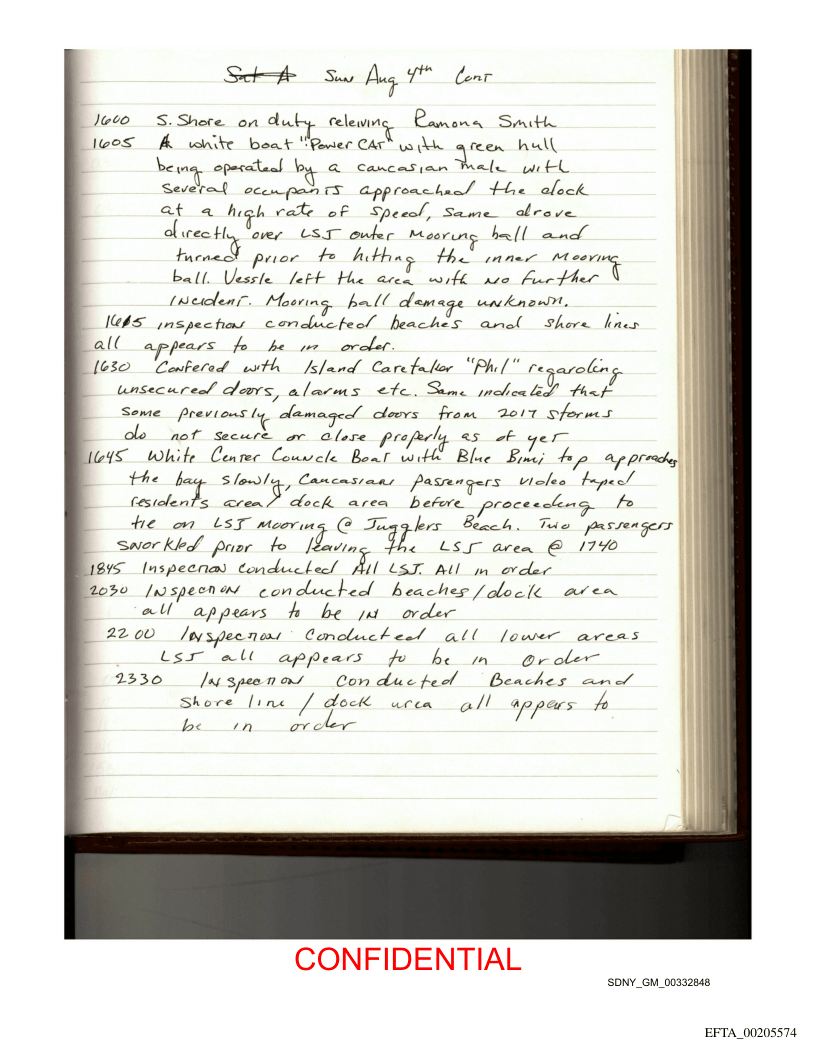 Sat A Sun Aug 4th Cont
1600 S. Shore on duty releiving Ramona Smith
1605 A white boat "Power CAT" with green hull
being operated by a caucasian male with
several occupants approached the dock
at a high rate of speed, same drove
directly over LSJ outer Mooring ball and
turned prior to hitting the inner Mooring
ball. Vessle left the area with no further
incident. Mooring ball damage unknown.
1615 inspection conducted beaches and shore lines
all appears to be in order.
1630 Confered with Island Caretaker "Phil" regarding
unsecured doors, alarms etc. Same indicated that
some previously damaged doors from 2017 storms
do not secure or close properly as of yet
1645 White Center Councle Boat with Blue Bimi top approaches
the bay slowly, Caucasian passengers video taped
residents area/dock area before proceeding to
tie on LSJ Mooring @ Jugglers Beach. Two passengers
snorkled prior to leaving the LSJ area @ 1740
1845 Inspection conducted All LSJ. All in order
2030 Inspection conducted beaches/dock area
all appears to be in order
2200 Inspection Conducted all lower areas
LSJ all appears to be in order
2330 Inspection conducted Beaches and
Shore line / dock area all appears to
be in order
CONFIDENTIAL
SDNY_GM_00332848
EFTA_00205574